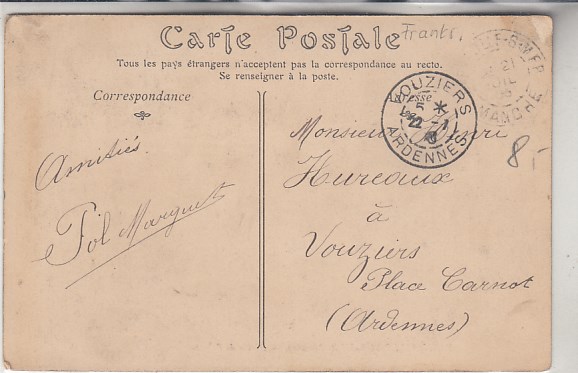 Carte Postale
Frankr.
Tous les pays étrangers n'acceptent pas la correspondance au recto.
Se renseigner à la poste.
Correspondance
Amitiés
VOUZIERS
ARDENNES
MANCHE
Monsieur
Hureaux
à
Vouziers
Place Carnot
(Ardennes)
8,-